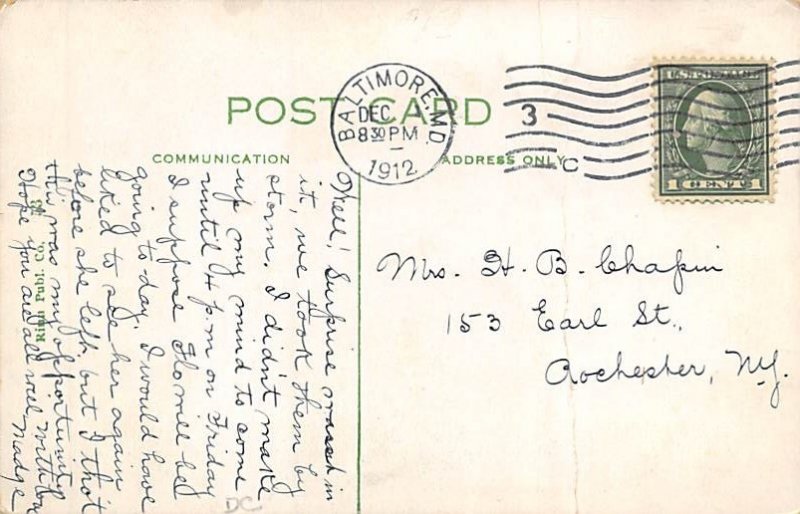 POST CARD
BALTIMORE, MD
DEC 1
8 30 PM
1912
3
C
U.S. POSTAGE
1 CENT 1
COMMUNICATION
ADDRESS ONLY
Well! Surprise wasn't in
it, we took them by
storm. I didn't make
up my mind to come
until 4 p.m on Friday
I suppose Flo will be
going to day. I would have
liked to see her again
before she left but I tho't
this was my opportunity
Hope you are all well with love
Madge
Mrs. H. B. Chapin
153 Earl St.,
Rochester, N.Y.
Rinn Publ. Co.
DC